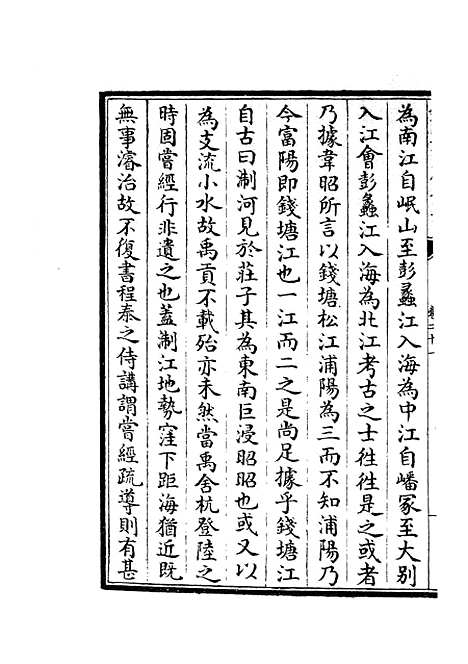 為南江自岷山至彭蠡江入海為中江自嶓冢至大别
入江會彭蠡江入海為北江考古之士徃徃是之或者
乃據韋昭所言以錢塘松江浦陽為三而不知浦陽乃
今富陽即錢塘江也一江而二之是尚足據乎錢塘江
自古曰制河見於莊子其為東南巨浸昭昭也或又以
為支流小水故禹貢不載殆亦未然當禹舍杭登陸之
時固嘗經行非遺之也蓋制江地勢窪下距海猶近既
無事濬治故不復書程泰之侍講謂嘗經疏導則有甚